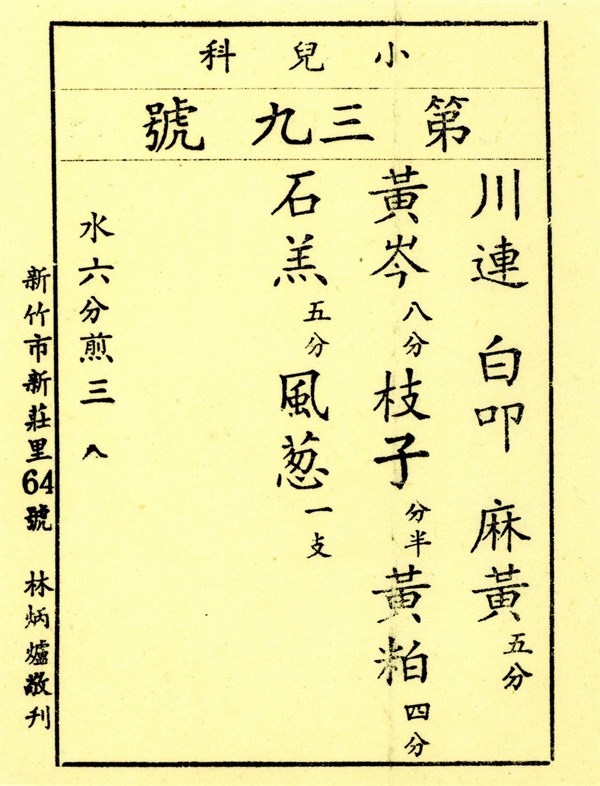 小兒科
第三九號
川連 白叩 麻黃五分
黃岑八分 枝子分半 黃粕四分
石羔五分 風葱一支
水六分煎三八
新竹市新莊里64號 林炳爐敬刊